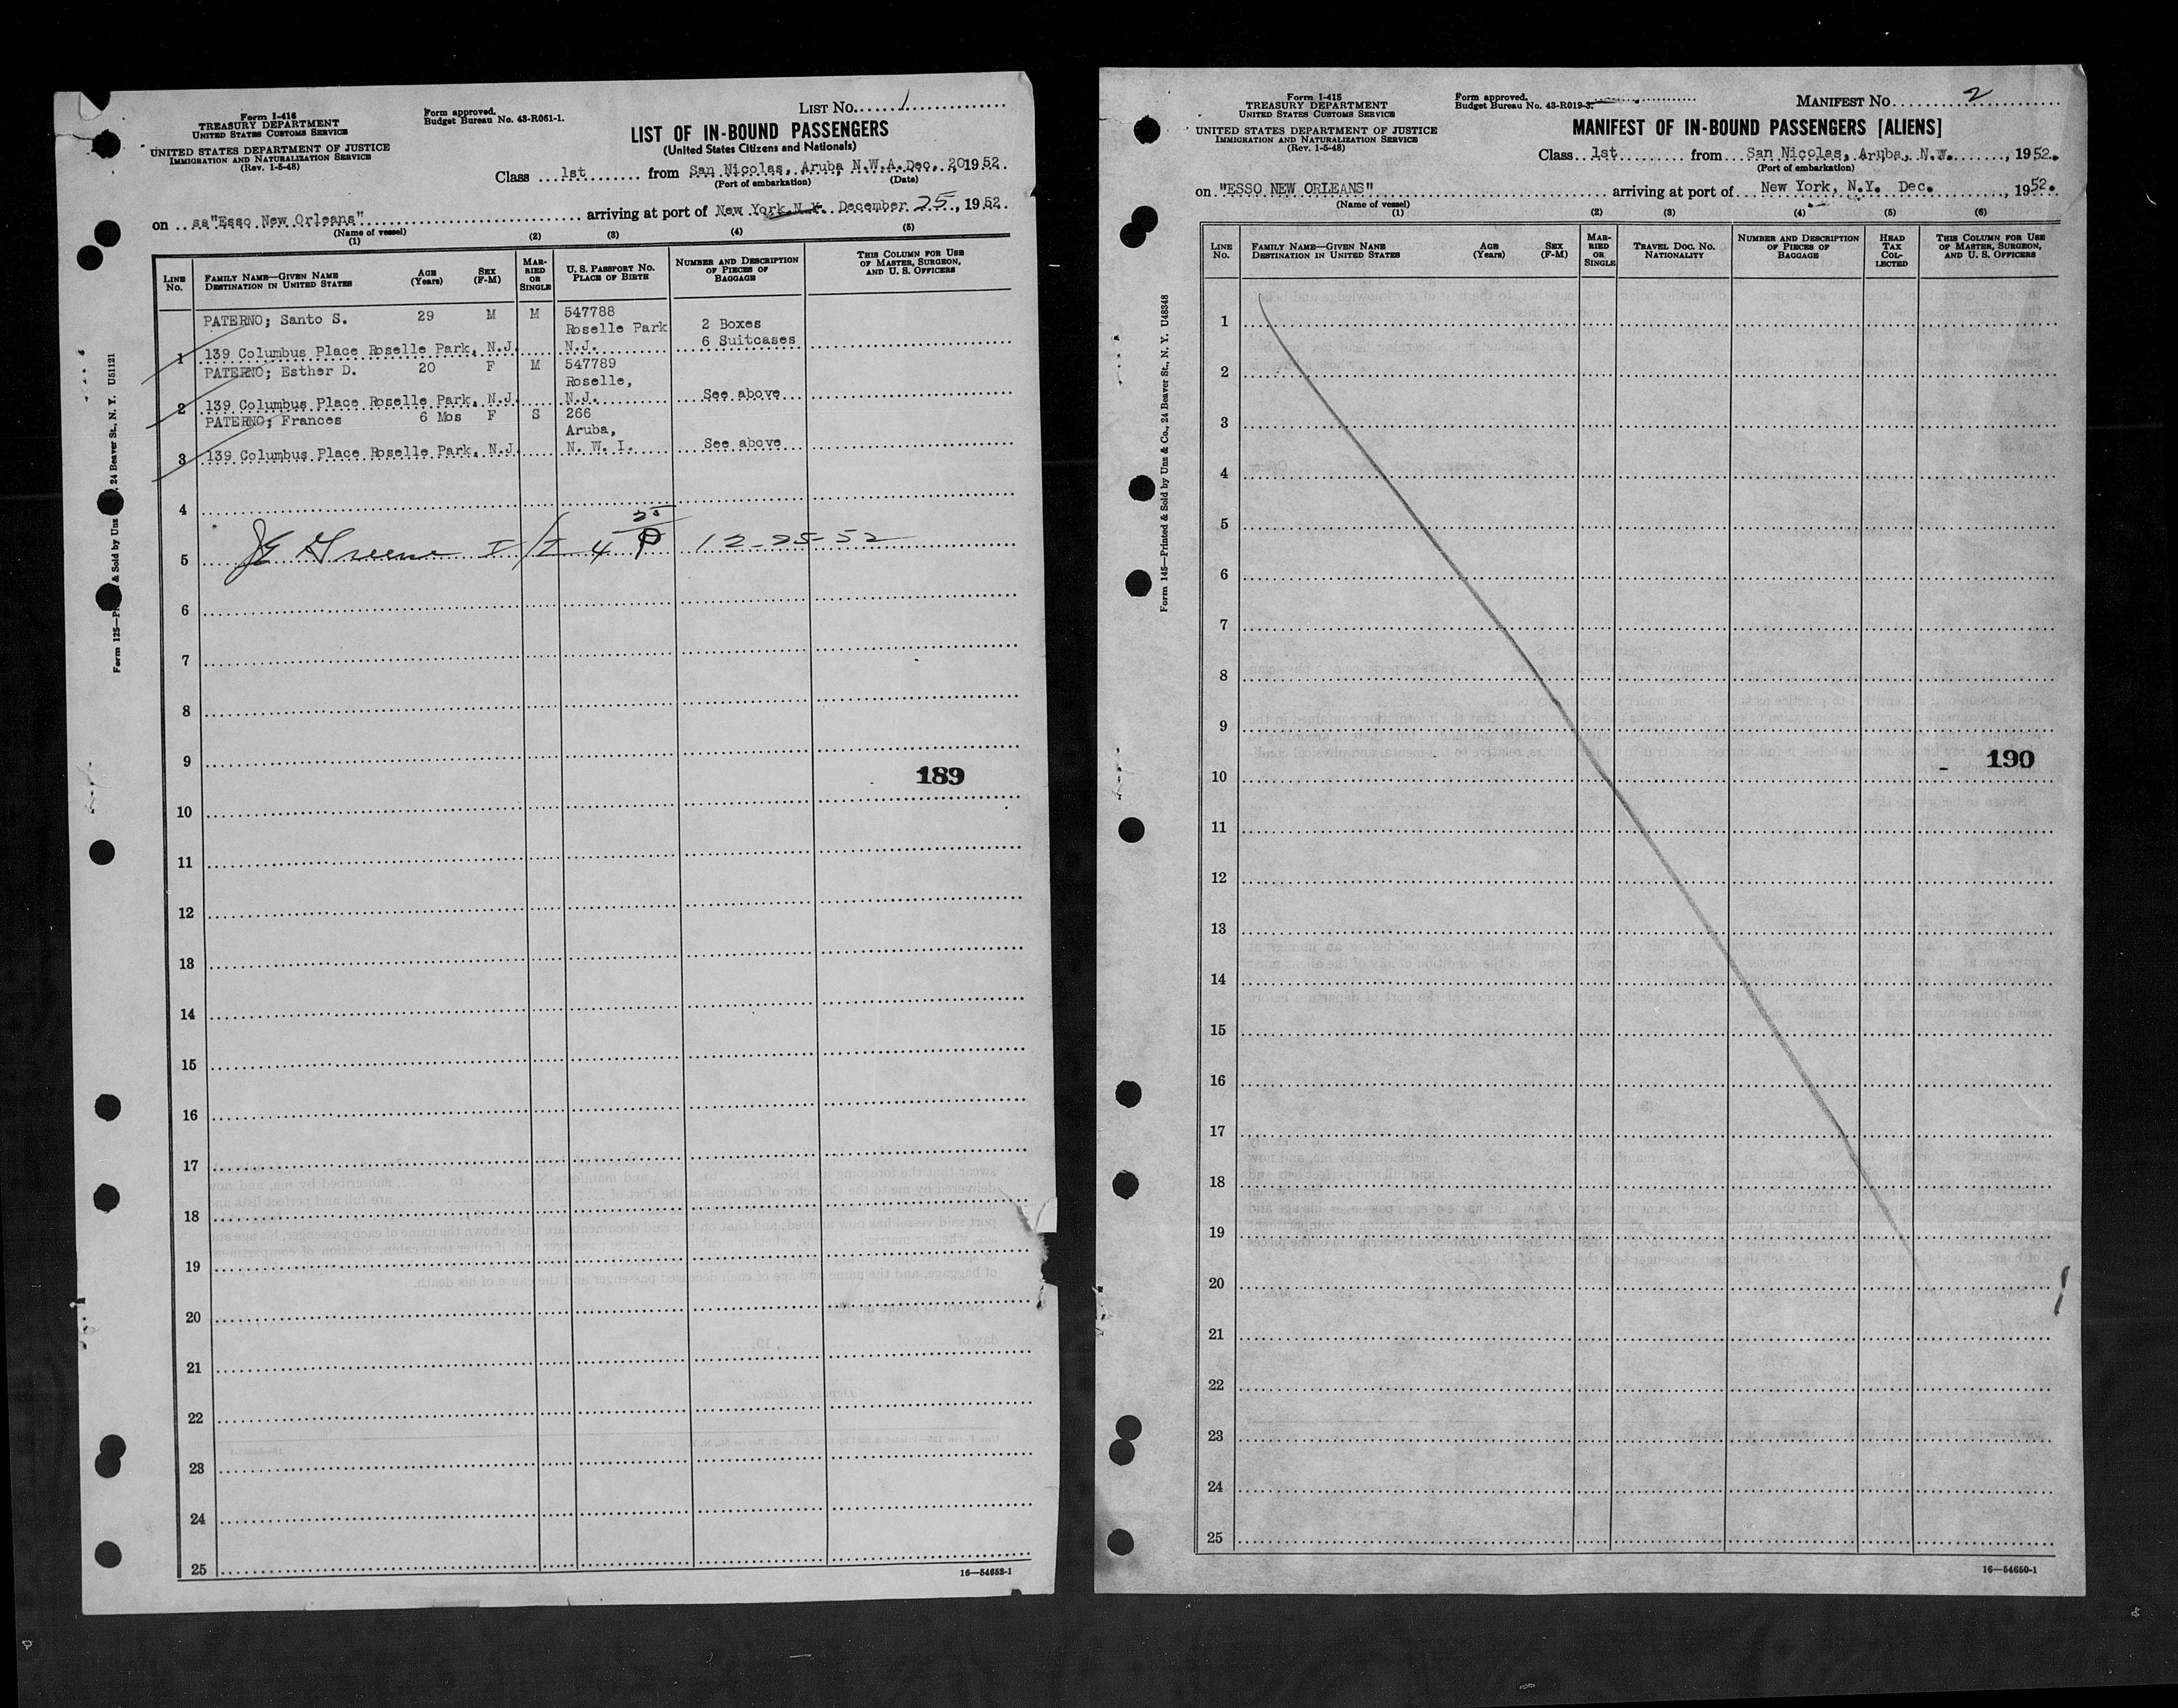 Form I-416
TREASURY DEPARTMENT
UNITED STATES CUSTOMS SERVICE
UNITED STATES DEPARTMENT OF JUSTICE
IMMIGRATION AND NATURALIZATION SERVICE
(Rev. 1-5-48)
Form approved.
Budget Bureau No. 43-R061-1.
LIST No. 1
LIST OF IN-BOUND PASSENGERS
(United States Citizens and Nationals)
Class 1st from San Nicolas, Aruba N.W.A. Dec. 20 1952.
(Port of embarkation) (Date)
on ss "Esso New Orleans" arriving at port of New York N.Y. December 25, 1952.
(Name of vessel)
(1) (2) (3) (4) (5)
LINE No. FAMILY NAME—GIVEN NAME DESTINATION IN UNITED STATES AGE (Years) SEX (F-M) MARRIED OR SINGLE U. S. PASSPORT NO. PLACE OF BIRTH NUMBER AND DESCRIPTION OF PIECES OF BAGGAGE THIS COLUMN FOR USE OF MASTER, SURGEON, AND U. S. OFFICERS
PATERNO; Santo S. 29 M M 547788
Roselle Park 2 Boxes
1 139 Columbus Place Roselle Park, N.J. N.J. 6 Suitcases
PATERNO; Esther D. 20 F M 547789
Roselle,
2 139 Columbus Place Roselle Park, N.J. N.J. See above
PATERNO; Frances 6 Mos F S 266
Aruba,
3 139 Columbus Place Roselle Park, N.J. N. W. I. See above
4
5 JE Greene I/I 4 25 P 12-25-52
6
7
8
9
189
10
11
12
13
14
15
16
17
18
19
20
21
22
23
24
25
16—54652-1
Form 125—P & Sold by Unz , 24 Beaver St., N. Y. U51121
Form I-415
TREASURY DEPARTMENT
UNITED STATES CUSTOMS SERVICE
UNITED STATES DEPARTMENT OF JUSTICE
IMMIGRATION AND NATURALIZATION SERVICE
(Rev. 1-5-48)
Form approved.
Budget Bureau No. 43-R019-3.
MANIFEST No. 2
MANIFEST OF IN-BOUND PASSENGERS [ALIENS]
Class 1st from San Nicolas, Aruba, N.W. , 1952.
(Port of embarkation)
on "ESSO NEW ORLEANS" arriving at port of New York, N.Y. Dec. , 1952.
(Name of vessel)
(1) (2) (3) (4) (5) (6)
LINE No. FAMILY NAME—GIVEN NAME DESTINATION IN UNITED STATES AGE (Years) SEX (F-M) MARRIED OR SINGLE TRAVEL DOC. NO. NATIONALITY NUMBER AND DESCRIPTION OF PIECES OF BAGGAGE HEAD TAX COLLECTED THIS COLUMN FOR USE OF MASTER, SURGEON, AND U. S. OFFICERS
1
2
3
4
5
6
7
8
9
190
10
11
12
13
14
15
16
17
18
19
20
21
22
23
24
25
16—54650-1
Form 145—Printed & Sold by Unz & Co., 24 Beaver St., N. Y. U48348